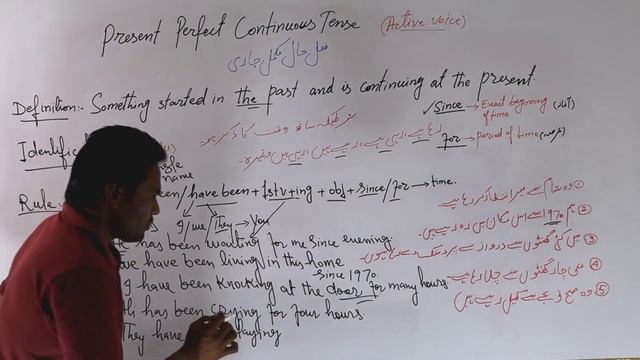 Present Perfect Continuous Tense (Active voice)
فعل حال مکمل جاری
Definition:- Something started in the past and is continuing at the present.
✓Since → Exact beginning of time
for → Period of time
رہا ہے، رہی ہے، رہے ہیں، رہی ہیں وغیرہ۔
Rule:
/have been + 1st v + ing + obj + since / for → time.
I/we/They → You
has been waiting for me since evening
have been living in this home since 1970.
I have been knocking at the door for many hours.
has been crying for four hours
They have playing
① وہ شام سے میرا انتظار کر رہا ہے۔
② ہم 1970 سے اس مکان میں رہ رہے ہیں۔
③ میں کئی گھنٹوں سے دروازے پر دستک دے رہا ہوں۔
④ علی چار گھنٹوں سے چلا رہا ہے۔
⑤ وہ صبح سے کھیل رہے ہیں